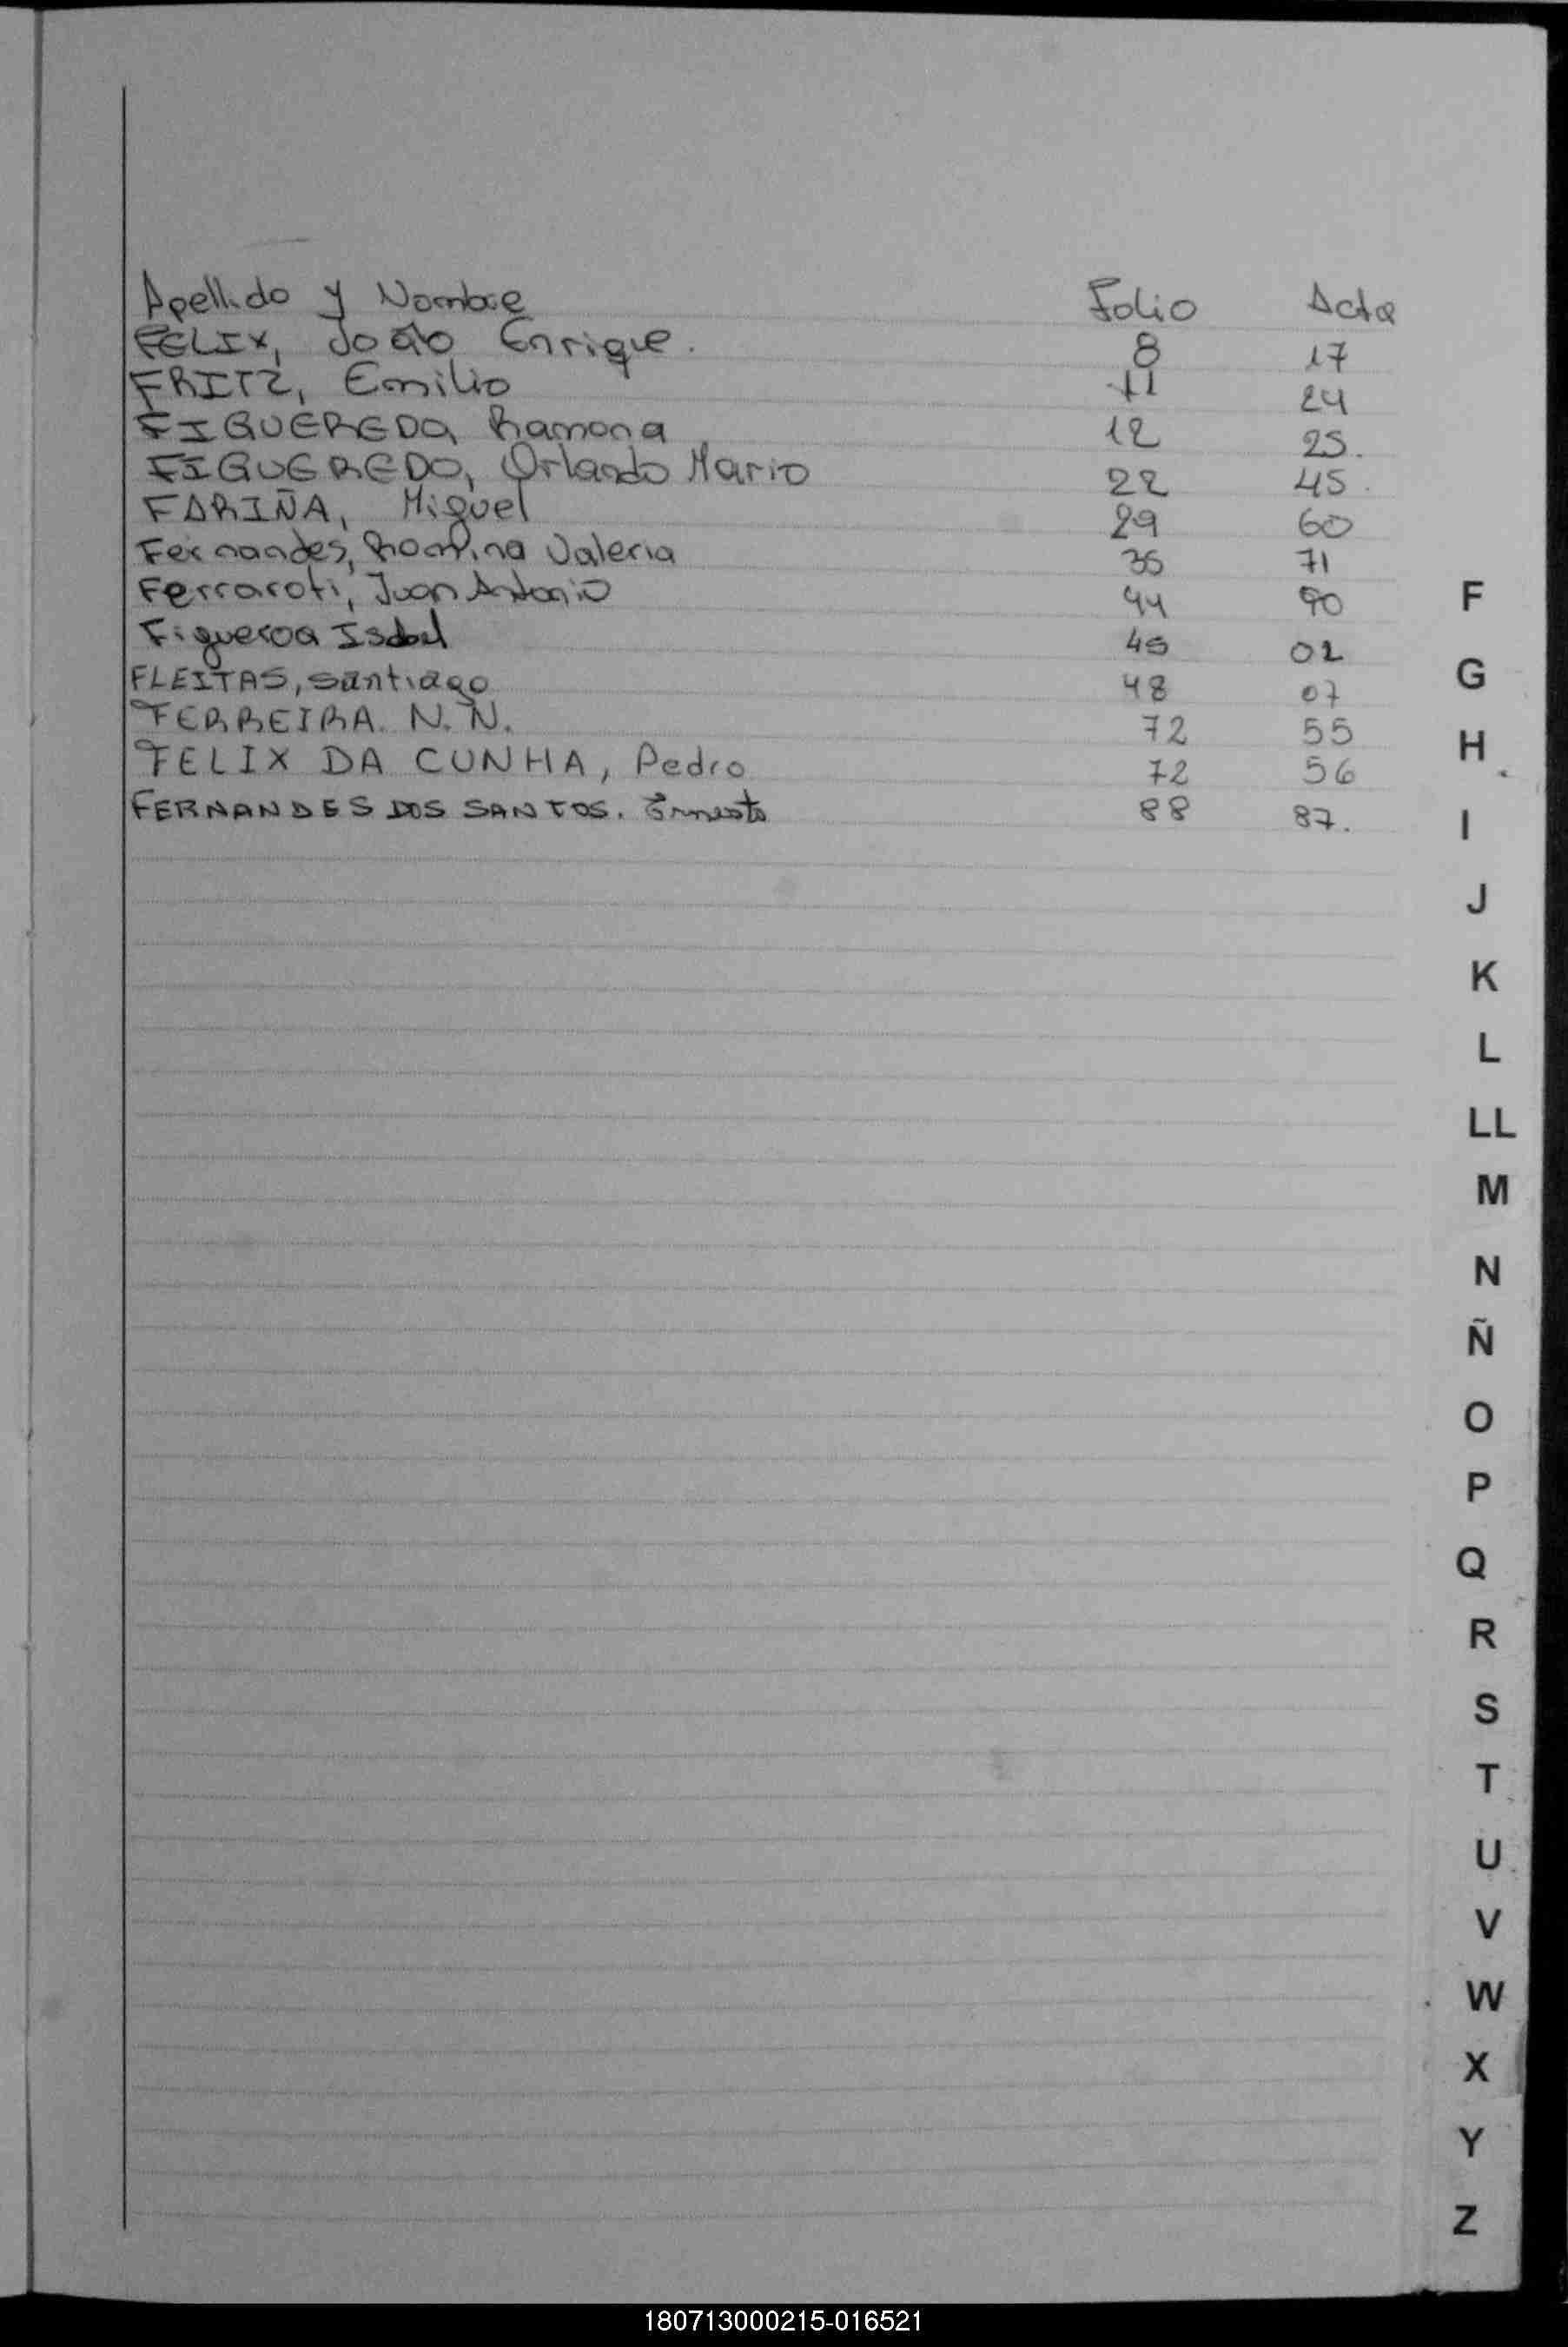 Apellido y Nombre Folio Acta
FELIX, João Enrique. 8 17
FRITZ, Emilio 11 24
FIGUEREDO, Ramona 12 25.
FIGUEREDO, Orlando Mario 22 45.
FARIÑA, Miguel 29 60
Fernandes, Romina Valeria 35 71
Ferraroti, Juan Antonio 44 90
Figueroa Isabel 45 02
FLEITAS, Santiago 48 07
FERREIRA. N.N. 72 55
FELIX DA CUNHA, Pedro 72 56
FERNANDES DOS SANTOS. Ernesto 88 87.
F
G
H
I
J
K
L
LL
M
N
Ñ
O
P
Q
R
S
T
U
V
W
X
Y
Z
180713000215-016521